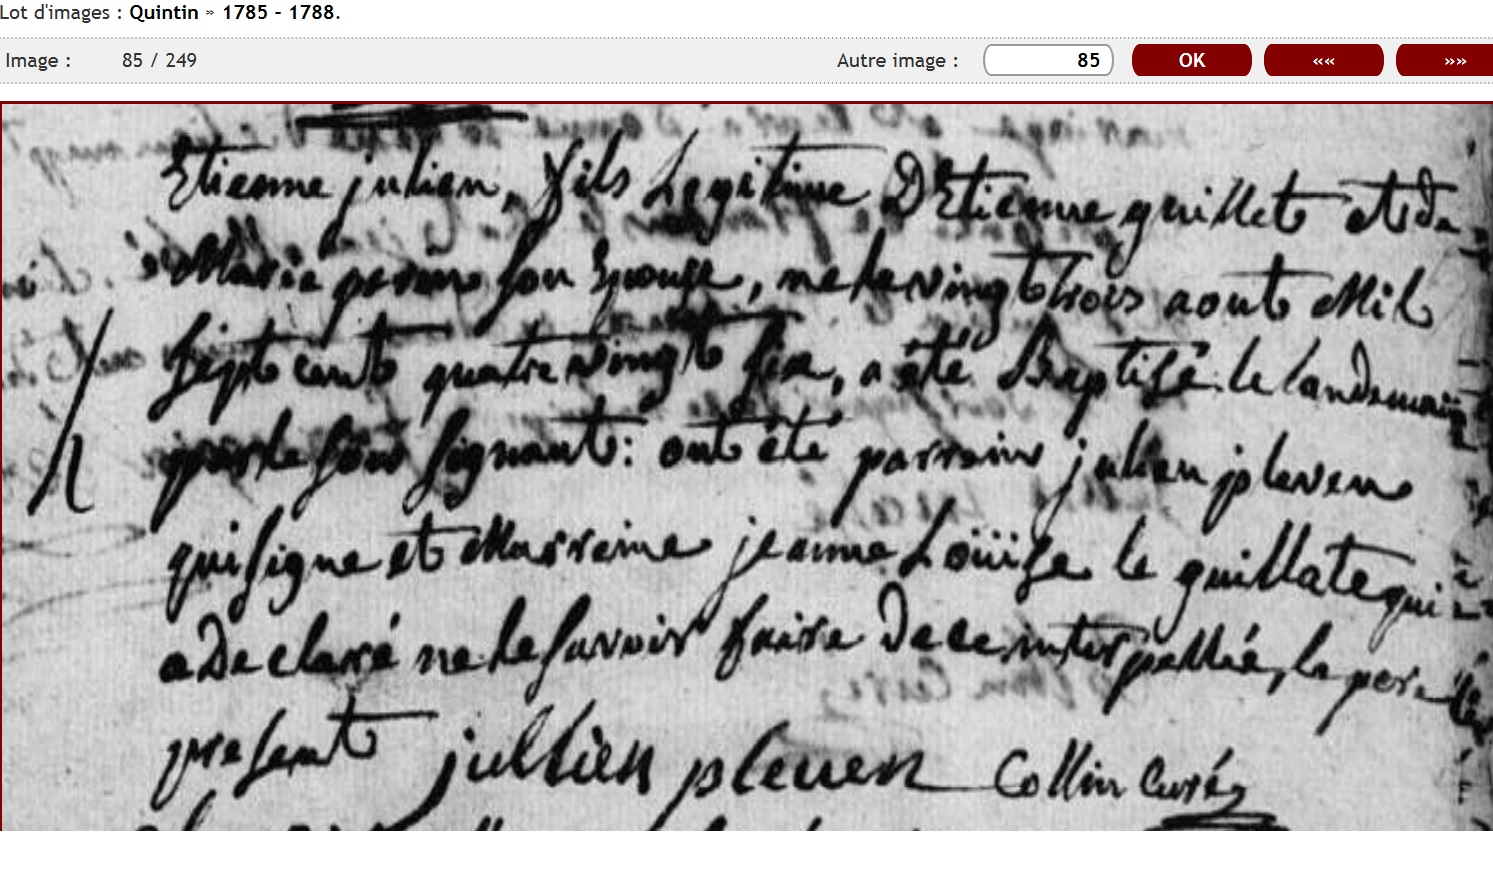 Lot d'images : Quintin » 1785 - 1788.
Image : 85 / 249 Autre image : 85 OK «« »»
Etienne julien, fils Legitime D'Etienne quillet et de
Marie perin son Epouse, ne le vingt trois aout Mil
sept cent quatre vingt six, a été Baptisé le landemain
par le sous signant : ont été parrain julien pleven
qui signe et Marreine jeanne Loüise le quillate qui
a Declaré ne le savoir faire de ce interpellée, le pere
present jullien pleuen Collin Curé